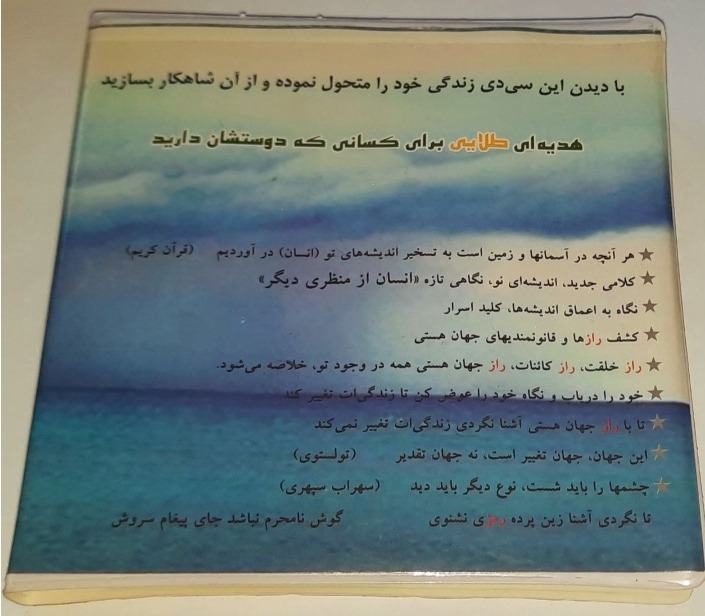 با دیدن این سی‌دی زندگی خود را متحول نموده و از آن شاهکار بسازید
هدیه‌ای طلایی برای کسانی که دوستشان دارید
★ هر آنچه در آسمانها و زمین است به تسخیر اندیشه‌های تو (انسان) در آوردیم (قرآن کریم)
★ کلامی جدید، اندیشه‌ای نو، نگاهی تازه «انسان از منظری دیگر»
★ نگاه به اعماق اندیشه‌ها، کلید اسرار
★ کشف رازها و قانونمندیهای جهان هستی
★ راز خلقت، راز کائنات، راز جهان هستی همه در وجود تو، خلاصه می‌شود.
★ خود را دریاب و نگاه خود را عوض کن تا زندگی‌ات تغییر کند
★ تا با راز جهان هستی آشنا نگردی زندگی‌ات تغییر نمی‌کند
★ این جهان، جهان تغییر است، نه جهان تقدیر (تولستوی)
★ چشمها را باید شست، نوع دیگر باید دید (سهراب سپهری)
تا نگردی آشنا زین پرده رمزی نشنوی گوش نامحرم نباشد جای پیغام سروش